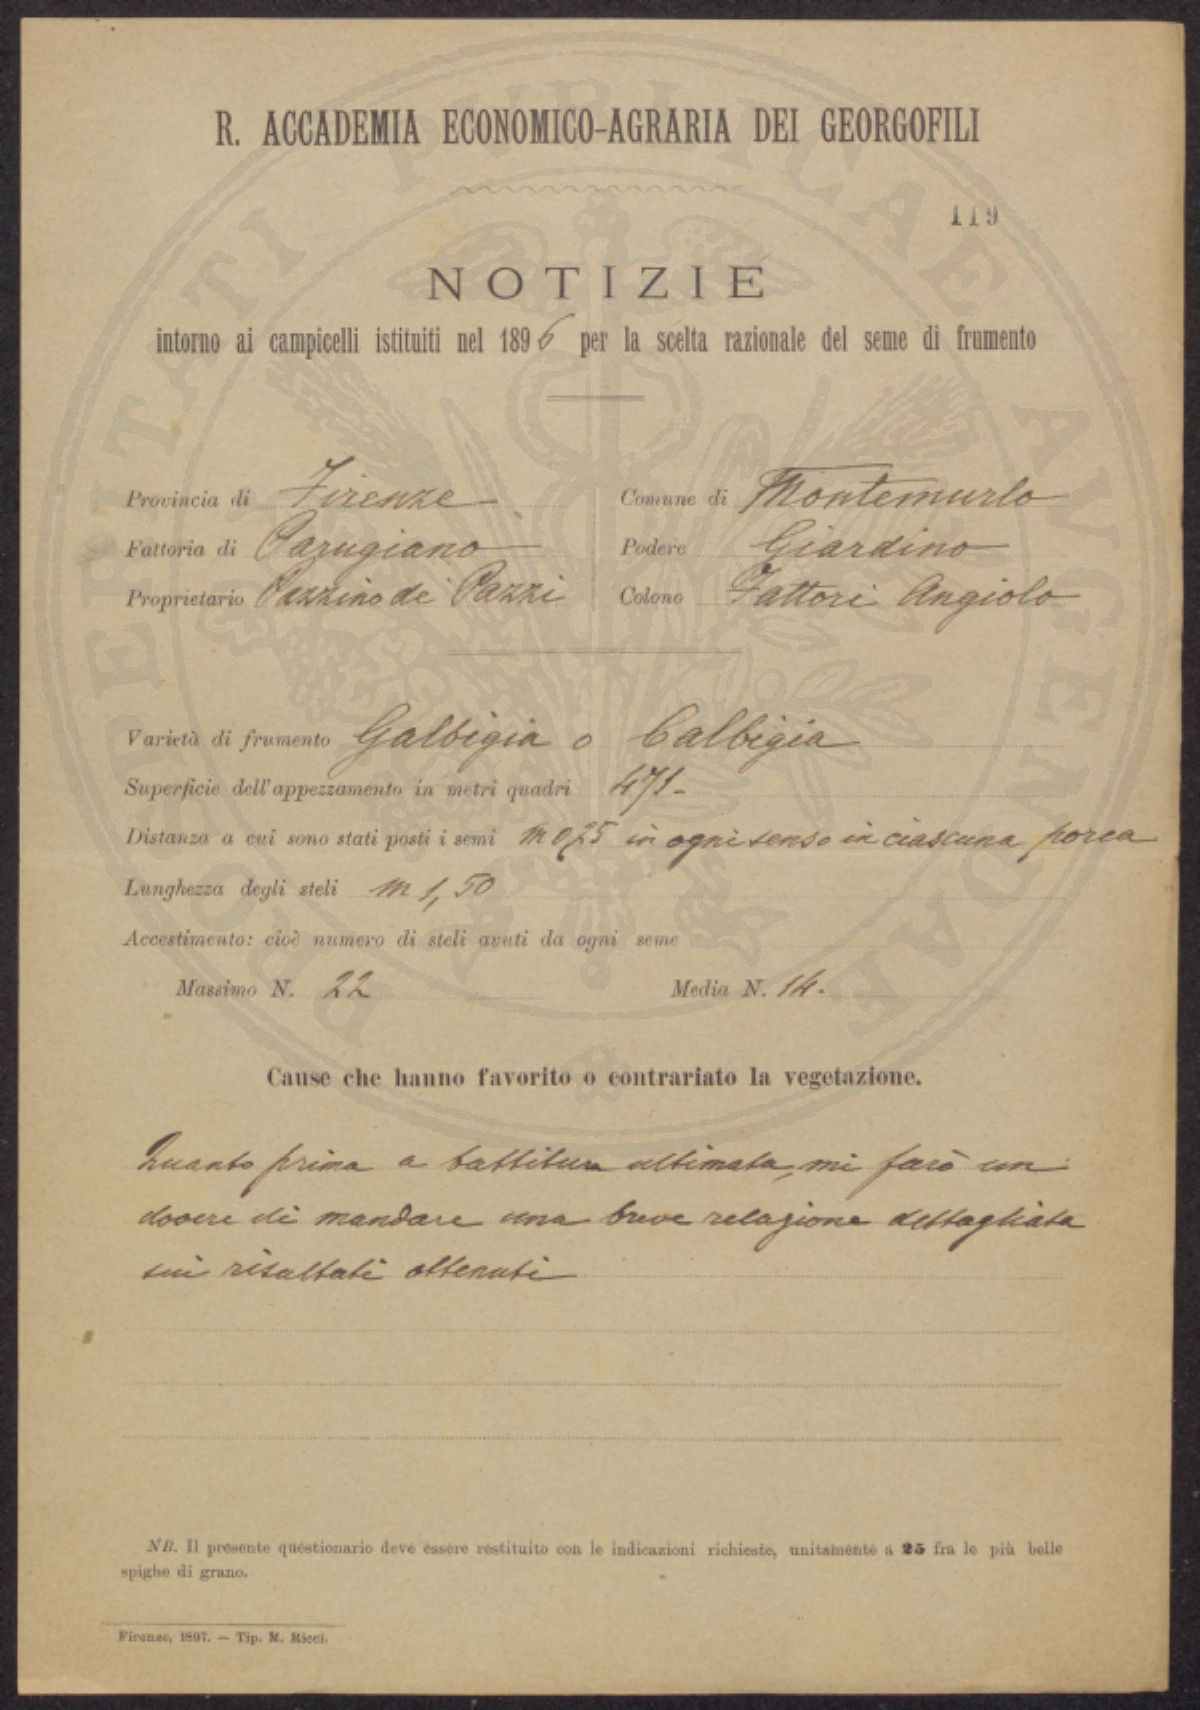 R. ACCADEMIA ECONOMICO-AGRARIA DEI GEORGOFILI
119
NOTIZIE
intorno ai campicelli istituiti nel 1896 per la scelta razionale del seme di frumento
Provincia di Firenze Comune di Montemurlo
Fattoria di Parugiano Podere Giardino
Proprietario Pazzino de' Pazzi Colono Fattori Angiolo
Varietà di frumento Galbigia o Calbigia
Superficie dell'appezzamento in metri quadri 471.
Distanza a cui sono stati posti i semi m 0,25 in ogni senso in ciascuna porca
Lunghezza degli steli m 1,50
Accestimento: cioè numero di steli avuti da ogni seme
Massimo N. 22 Media N. 14.
Cause che hanno favorito o contrariato la vegetazione.
Quanto prima a battitura ultimata, mi farò un
dovere di mandare una breve relazione dettagliata
sui risultati ottenuti
NB. Il presente questionario deve essere restituito con le indicazioni richieste, unitamente a 25 fra le più belle
spighe di grano.
Firenze, 1897. — Tip. M. Ricci.
PROSPERITATI PUBLICAE AUGENDAE